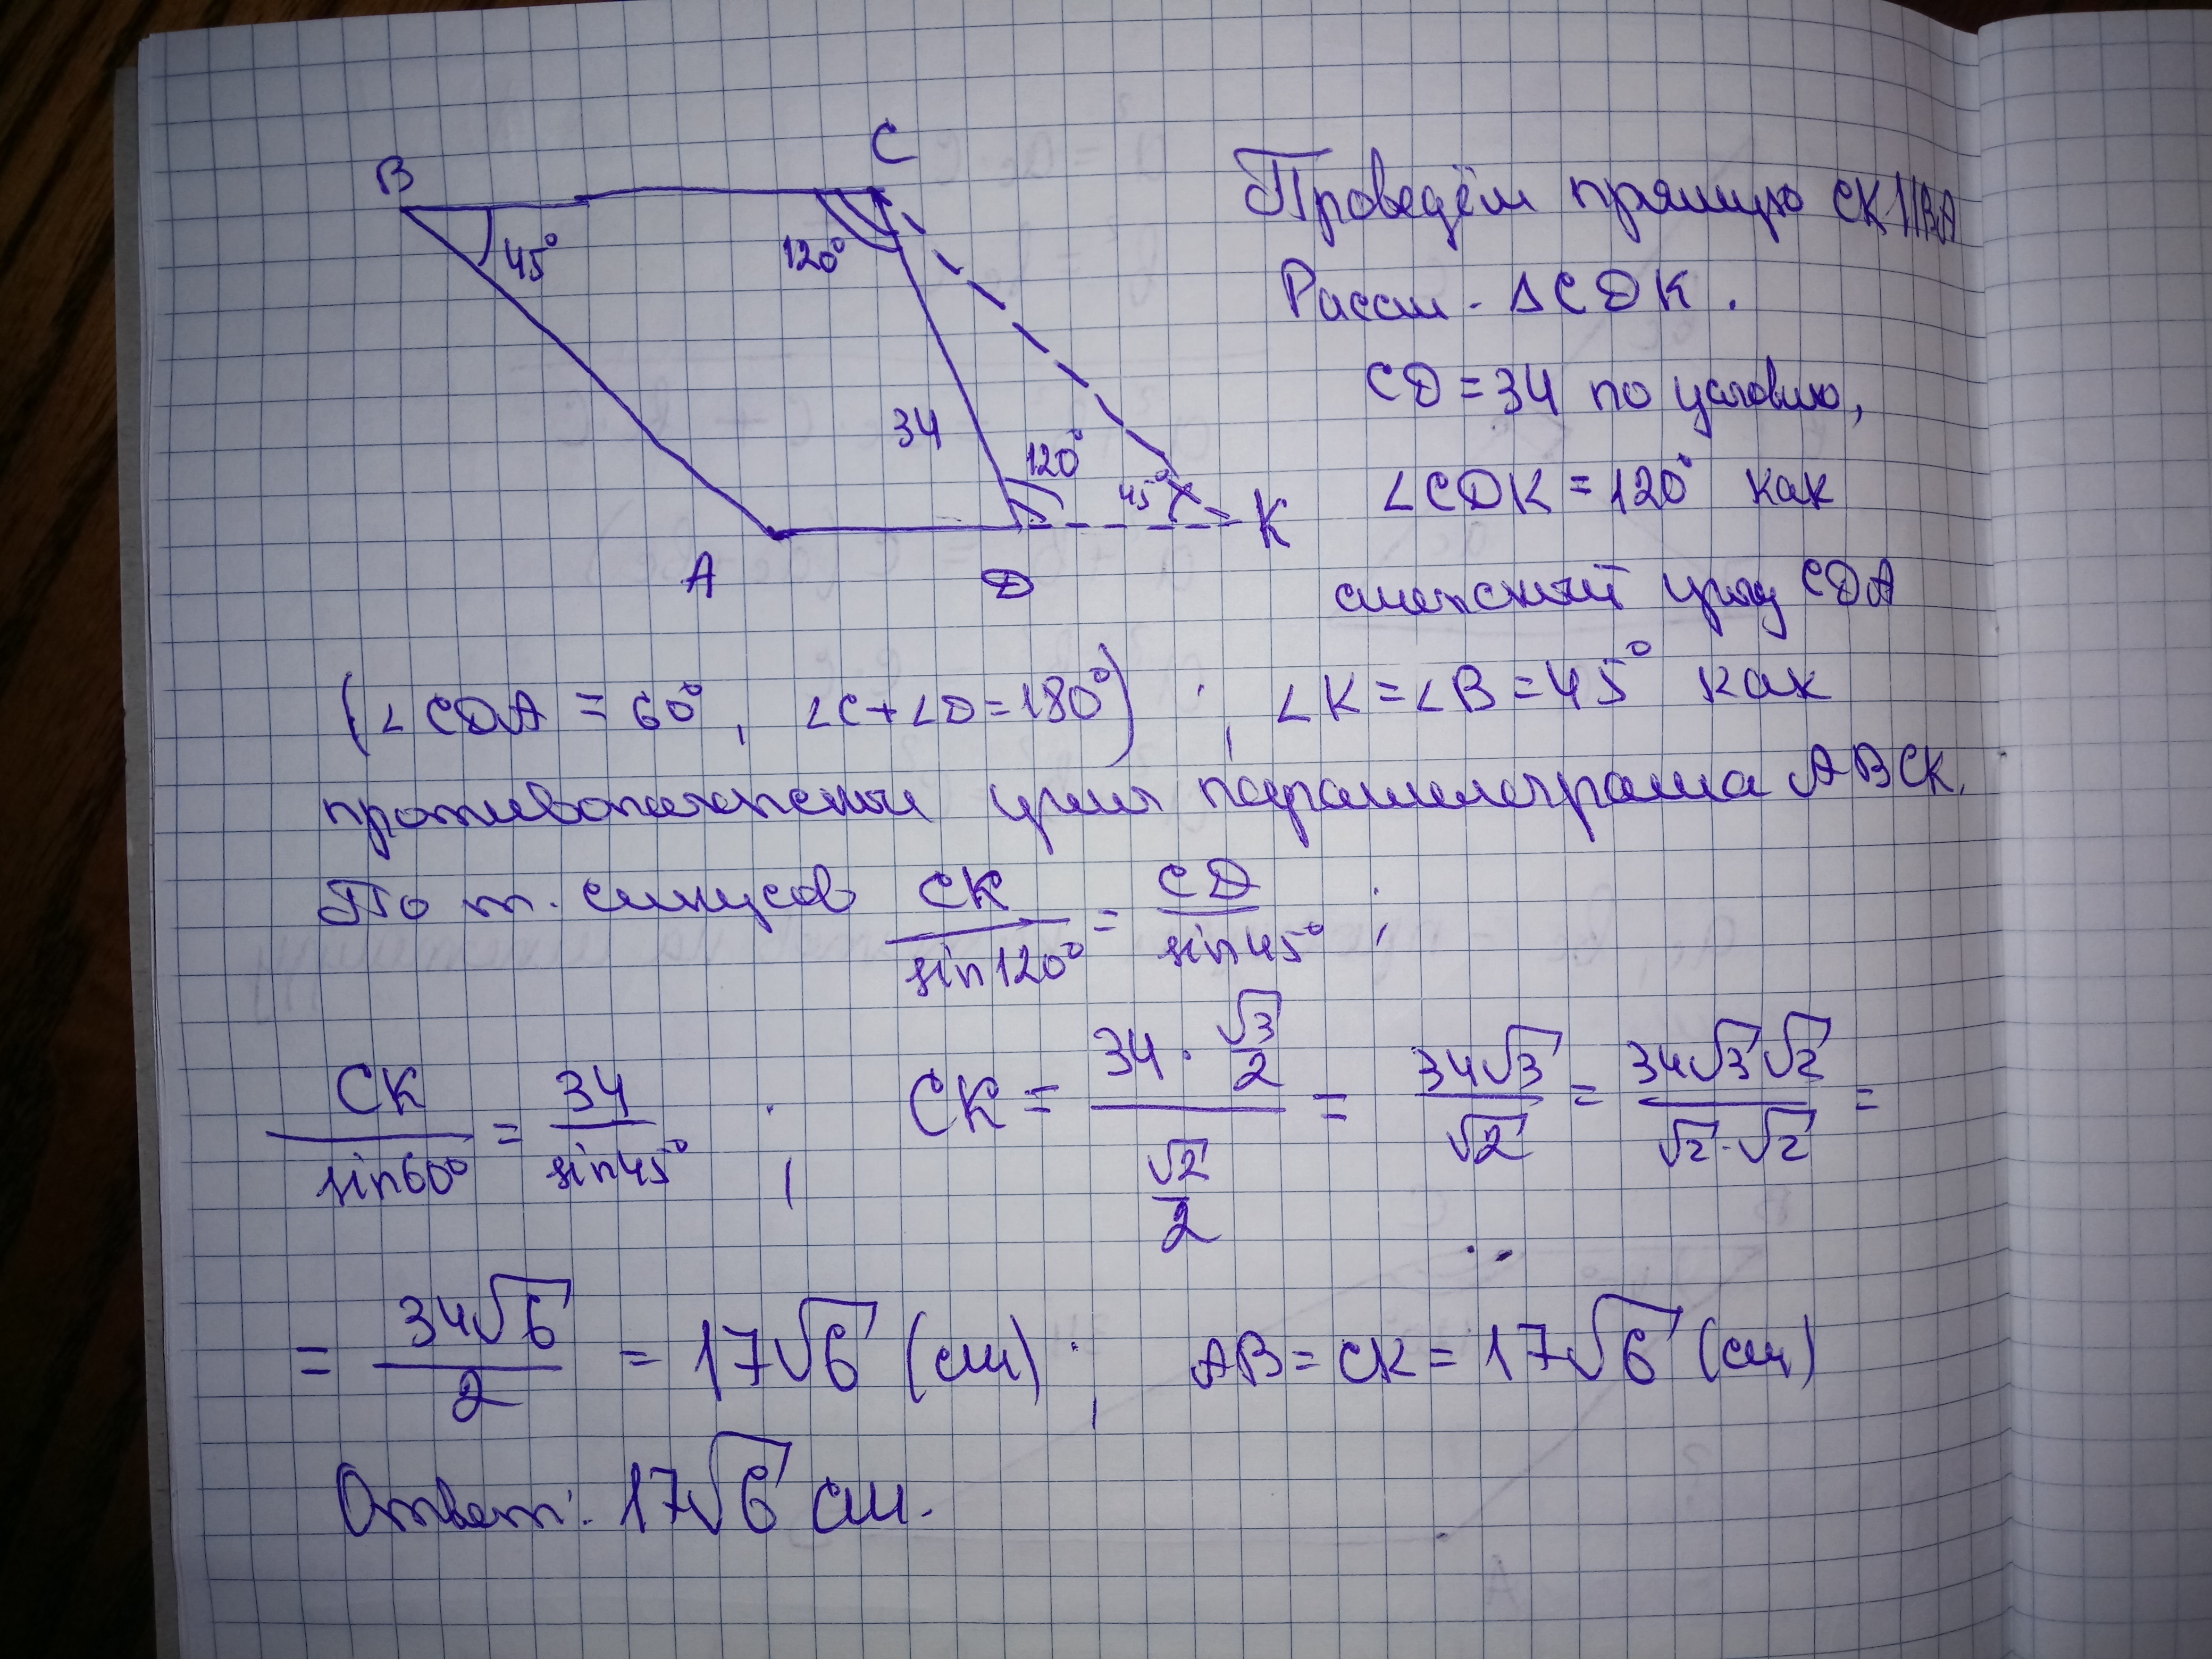 B
C
45°
120°
34
120°
45°
K
A
D
Проведём прямую CK || BA
Рассм. ΔCDK.
CD = 34 по условию,
∠CDK = 120° как
смежный углу CDA
(∠CDA = 60°, ∠C+∠D=180°) ; ∠K=∠B=45° как
противоположные углы параллелограмма ABCK.
По т. синусов CK/sin120° = CD/sin45° ;
CK/sin60° = 34/sin45° ; CK = (34 · √3/2)/(√2/2) = 34√3/√2 = 34√3√2/√2·√2 =
= 34√6/2 = 17√6 (см) ; AB = CK = 17√6 (см)
Ответ: 17√6 см.